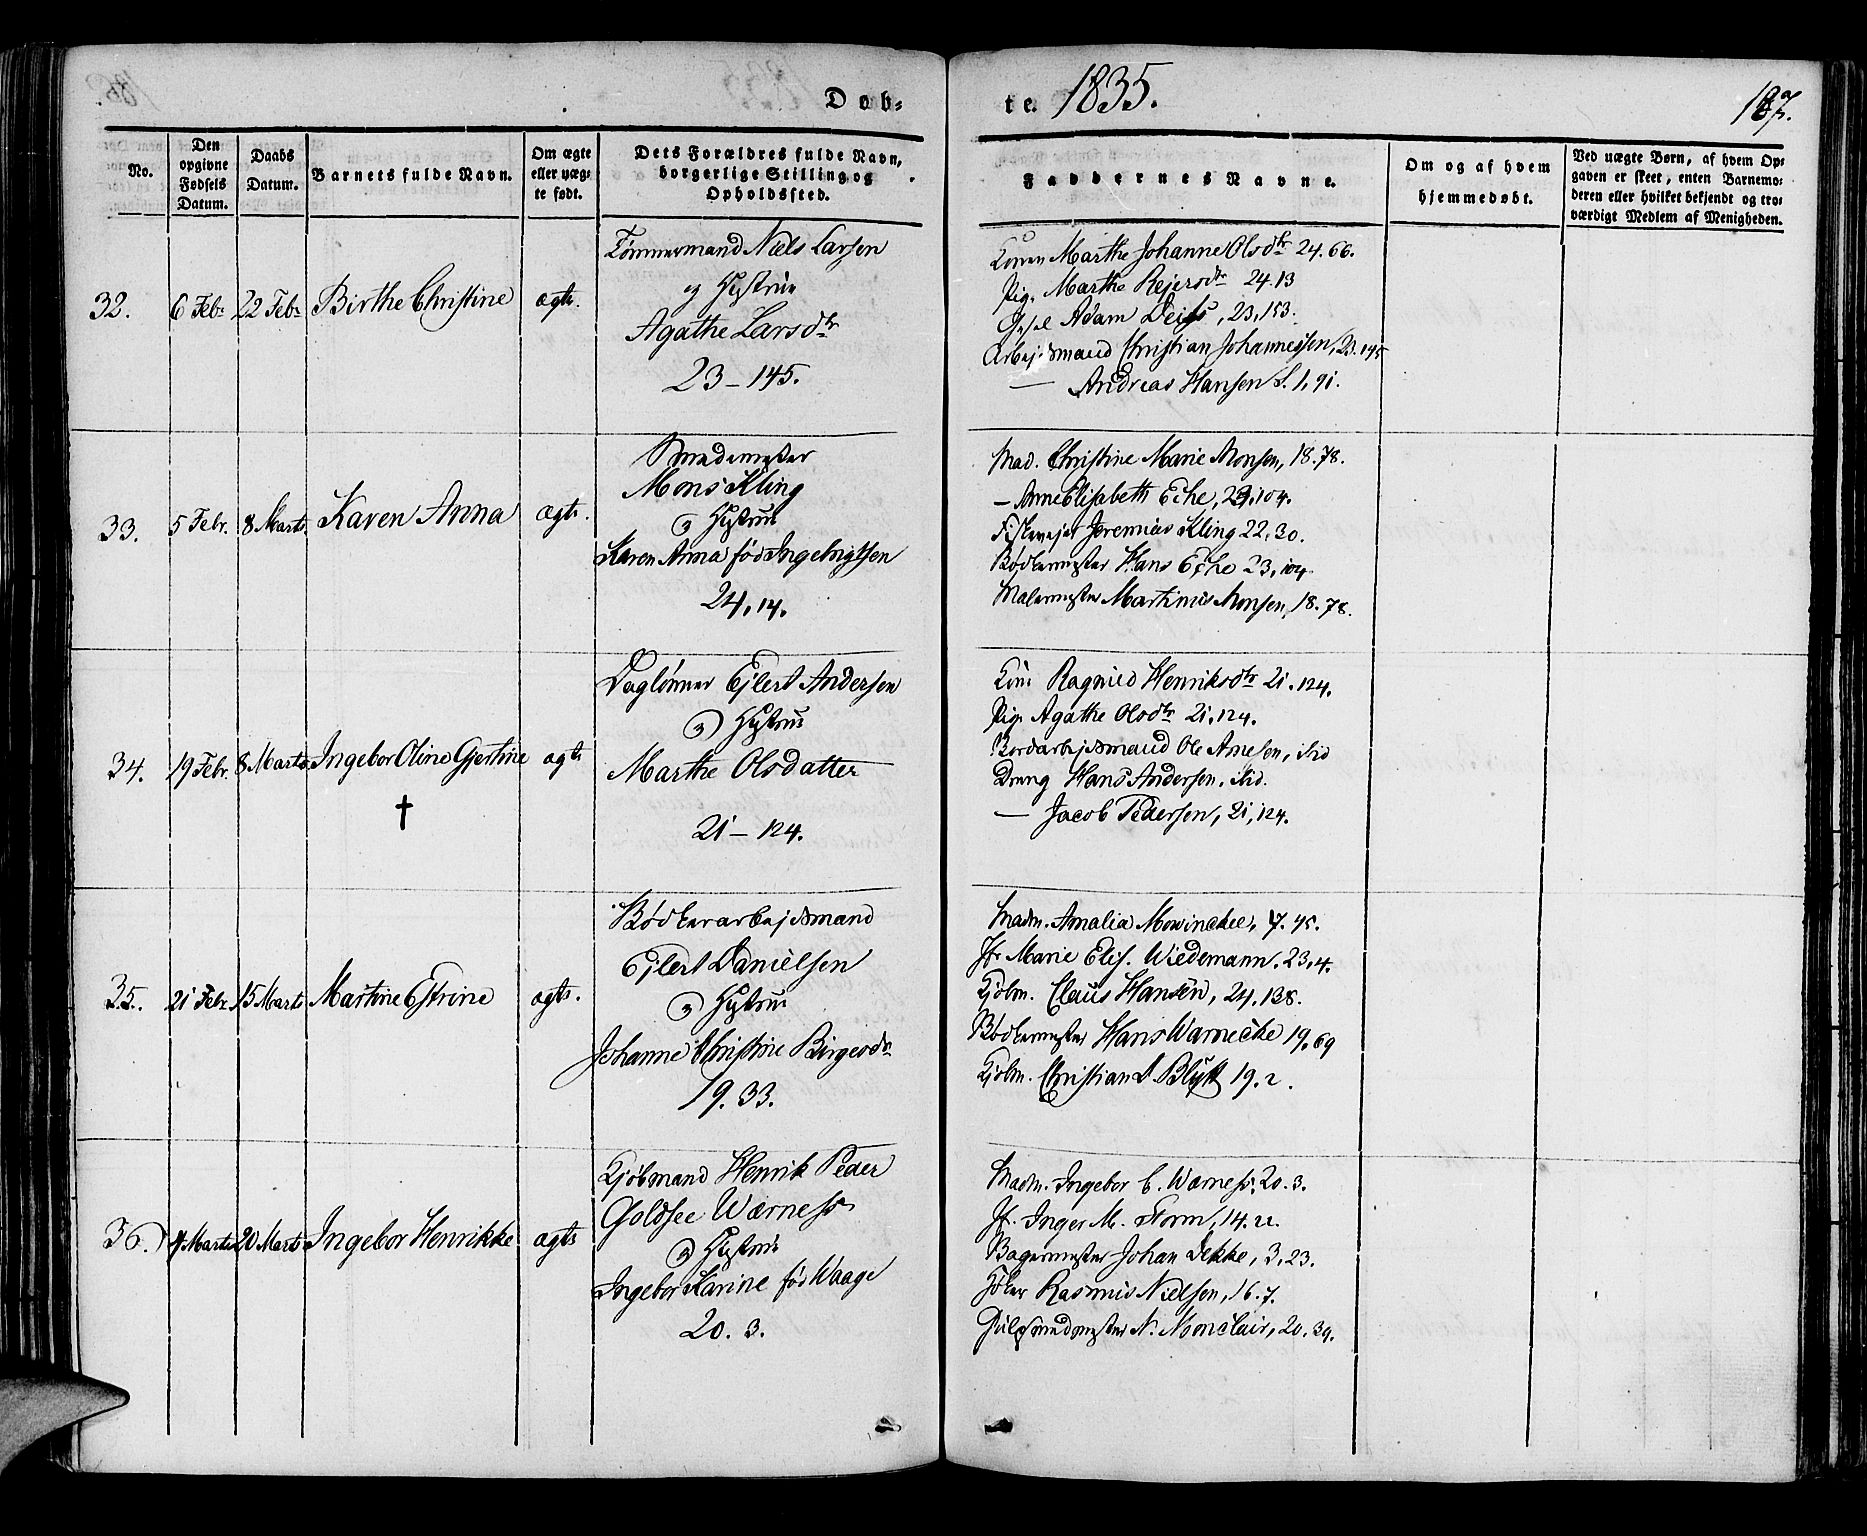 Døb=
te. 1835.
187.
No.
Den opgivne Fødsels Datum.
Daabs Datum.
Barnets fulde Navn.
Om ægte eller uæg= te født.
Dets Forældres fulde Navn, borgerlige Stilling og Opholdssted.
Faddernes Navne.
Om og af hvem hjemmedøbt.
Ved uægte Børn, af hvem Op= gaven er skeet, enten Barnemo= deren eller hvilket bekjendt og tro= værdigt Medlem af Menigheden.
32. 6 Febr 22 Febr Birthe Christine ægte.
Tømmermand Niels Larsen
og Hustrue
Agathe Larsdtr
23 - 145.
Konen Marthe Johanne Olsdtr 24.66.
Pig. Marthe Rejersdtr 24.13
Adam 23,153.
Arbejdsmand Christian Johannessen, 23.145
— Andreas Hansen S. 1,91.
33. 5 Febr. 8 Marts Karen Anna ægte.
Smedemester
Mons Kling
og Hustrue
Karen Anna fød Ingebrigtsen
24.14.
Mad. Christine Marie Monsen, 18.78.
— Anne Elisabeth Eche, 23,104.
Jeremias Kling 22.30.
Bødkermester Hans Eche 23,104
Malermester Martinus Monsen, 18.78.
34. 19 Febr. 8 Marts Ingebor Oline Gjertine ægte
†
Daglønner Ejlert Andersen
og Hustrue
Marthe Olsdatter
21 - 124.
Kone Ragnild Henriksdtr 21.124.
Pig. Agathe Olsdtr 21,124.
Bordarbejdsmand Ole Arnesen, ibid
Dreng Hans Andersen, ibid.
— Jacob Pedersen, 21,124.
35. 21 Febr 15 Marts Martine Estrine ægte.
Bødkerarbejdsmand
Ejlert Danielsen
og Hustrue
Johanne Christine Birgersdtr
19.33.
Madm. Amalia Mowinckel, 7.45.
Jfr Marie Elis. Wiedemann. 23,4.
Kjøbm. Claus Hansen, 24.138.
Bødkermester Hans Warnecke 19.69
Kjøbm. Christian D. Blytt 19.2.
36. 4 Marts 20 Marts Ingebor Henrikke ægte
Kjøbmand Henrik Peder
Goldsee Wærness
og Hustrue
Ingebor Karine fød Waage
20.3.
Madm. Ingebor C. Wærness, 20.3.
Jf. Inger M. Storm, 14.22.
Bagermester Johan Dekke, 3,23.
Høker Rasmus Nielsen, 16.7.
Guldsmedmester N. Monclair, 20.39.